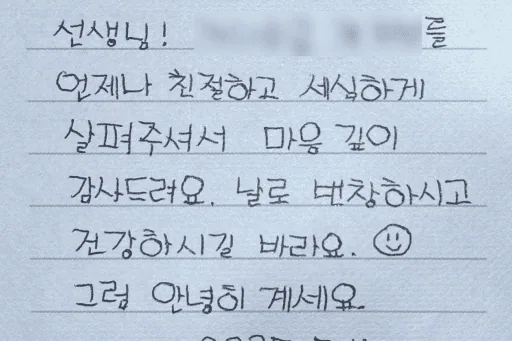 선생님! 를
언제나 친절하고 세심하게
살펴주셔서 마음 깊이
감사드려요. 날로 번창하시고
건강하시길 바라요. ☺
그럼 안녕히 계세요.